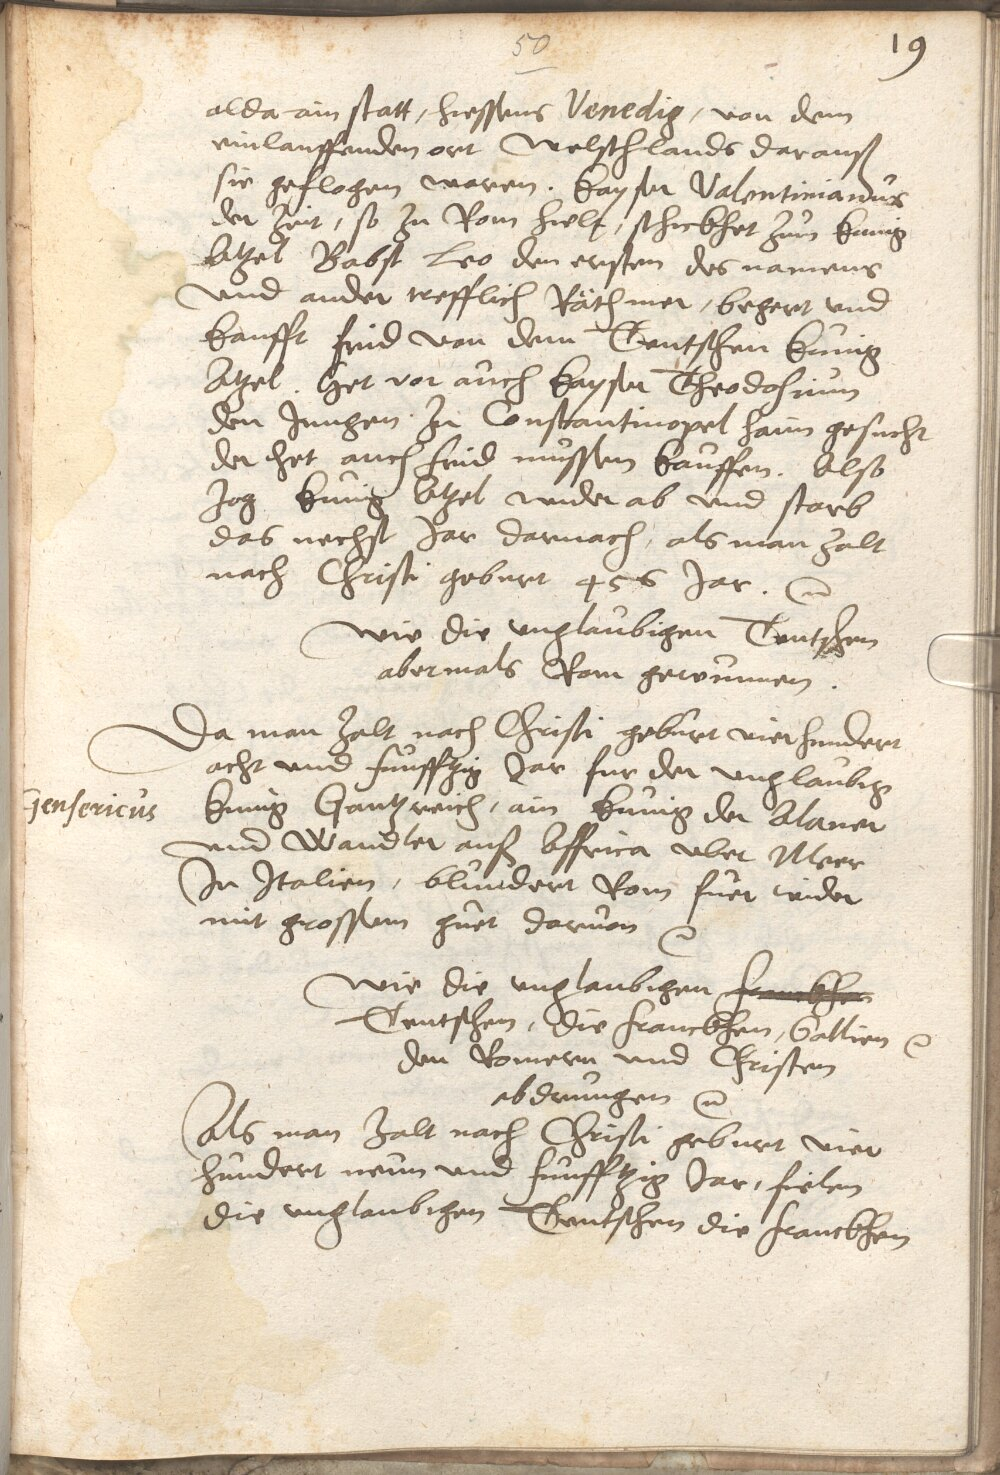 50
19
alda ain statt, hiessens Venedig, von dem
einlauffenden ort Welschlands darauß
sie geflogen waren. Kayser Valentinianus
der Zeit, so zu Rom hielt, schickhet zum künig
Atzel Babst Leo den ersten des namens
und ander trefflich Räth mer, begert und
kaufft frid von dem Teutschen künig
Atzel. Het vor auch Kayser Theodosium
den Jungen zu Constantinopel haim gesucht
der het auch frid müssen kauffen. Also
zog künig Atzel wider ab und starb
das nechst Jar darnach, als man zalt
nach Christi geburt 456 Jar.
Wie die unglaubigen Teutschen
abermals Rom gewunnen.
Da man zalt nach Christi geburt vierhundert
acht und funfftzig Jar fur der unglaubig
Gensericus
künig Gantzreich, ain künig der Alaner
und Wandler auß Affrica uber Meer
In Italien, blundert Rom fuer wider
mit grossem guet darvon
Wie die unglaubigen franckhen
Teutschen, die franckhen, Gallien
den Romern und Christen
abdrungen
Als man zalt nach Christi geburt vier
hundert neun und funfftzig Jar, fielen
die unglaubigen Teutschen die franckhen